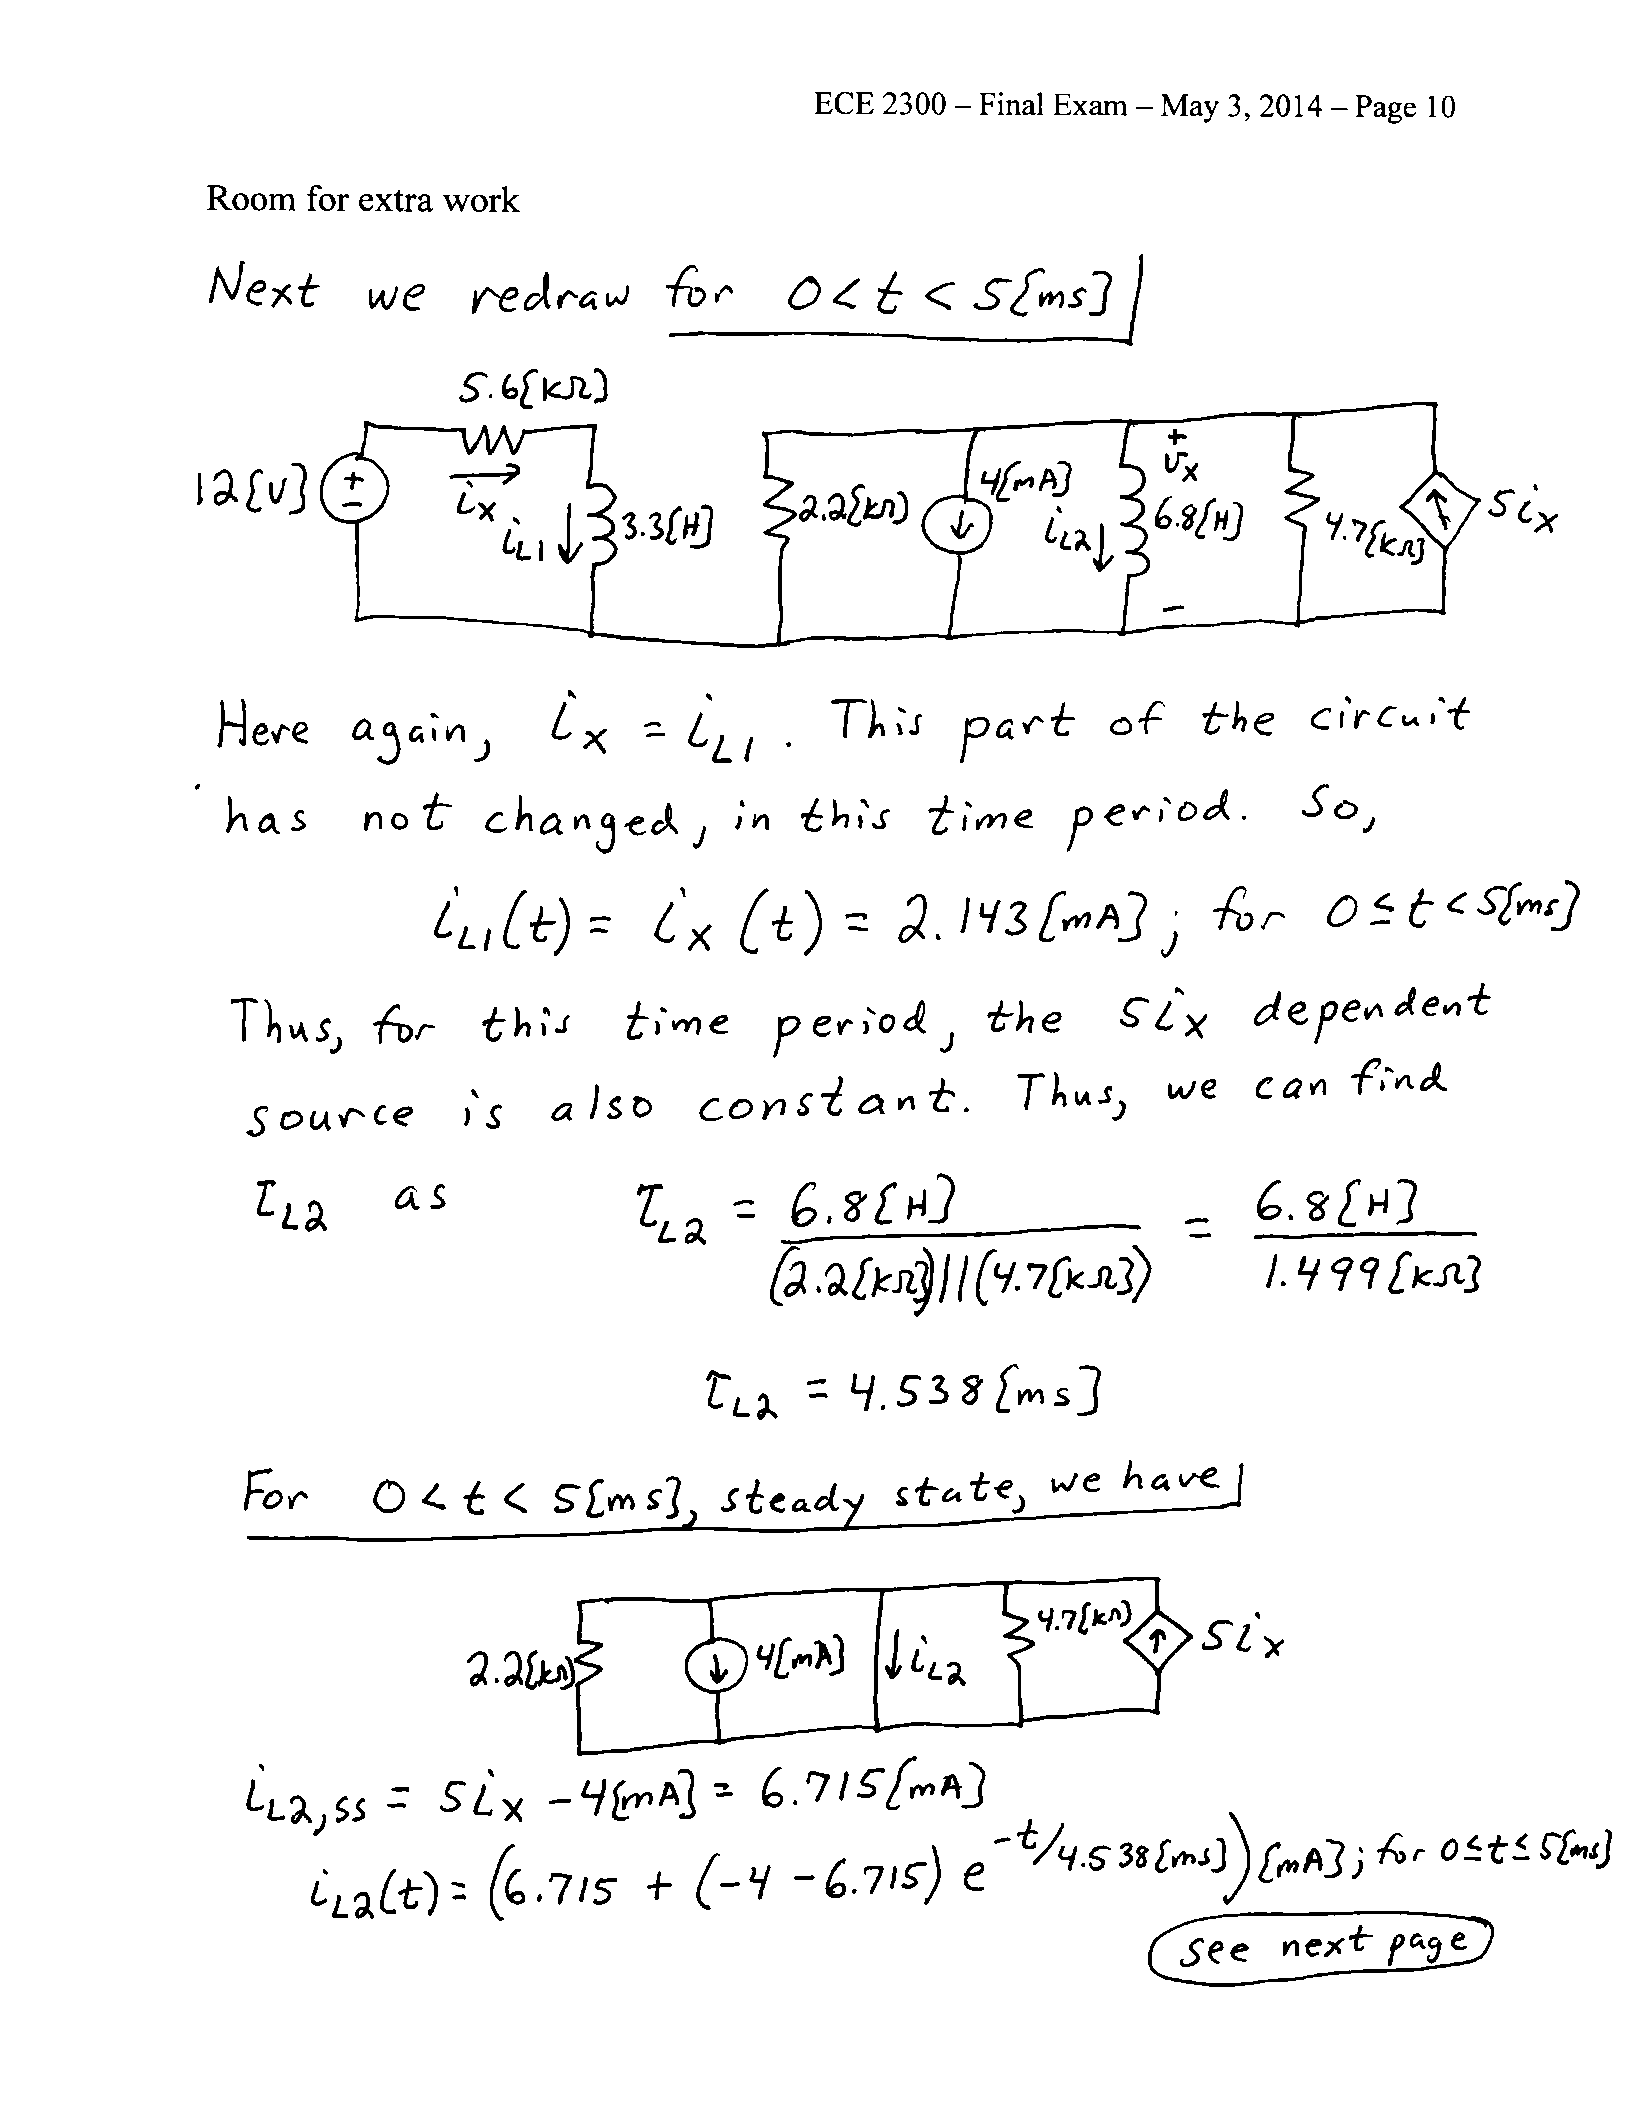 ECE 2300 – Final Exam – May 3, 2014 – Page 10
Room for extra work
Next we redraw for 0<t<5[ms]
5.6[kΩ]
12[V] + − iX iL1 3.3[H] 2.2[kΩ] 4[mA] iL2 + vX − 6.8[H] 4.7[kΩ] 5iX
Here again, iX = iL1. This part of the circuit
has not changed, in this time period. So,
iL1(t) = iX(t) = 2.143[mA]; for 0≤t<5[ms]
Thus, for this time period, the 5iX dependent
source is also constant. Thus, we can find
τL2 as τL2 = 6.8[H] / (2.2[kΩ])||(4.7[kΩ]) = 6.8[H] / 1.499[kΩ]
τL2 = 4.538[ms]
For 0<t<5[ms], steady state, we have
2.2[kΩ] 4[mA] iL2 4.7[kΩ] 5iX
iL2,ss = 5iX −4[mA] = 6.715[mA]
iL2(t) = (6.715 + (−4 −6.715) e^−t/4.538[ms])[mA]; for 0≤t≤5[ms]
see next page